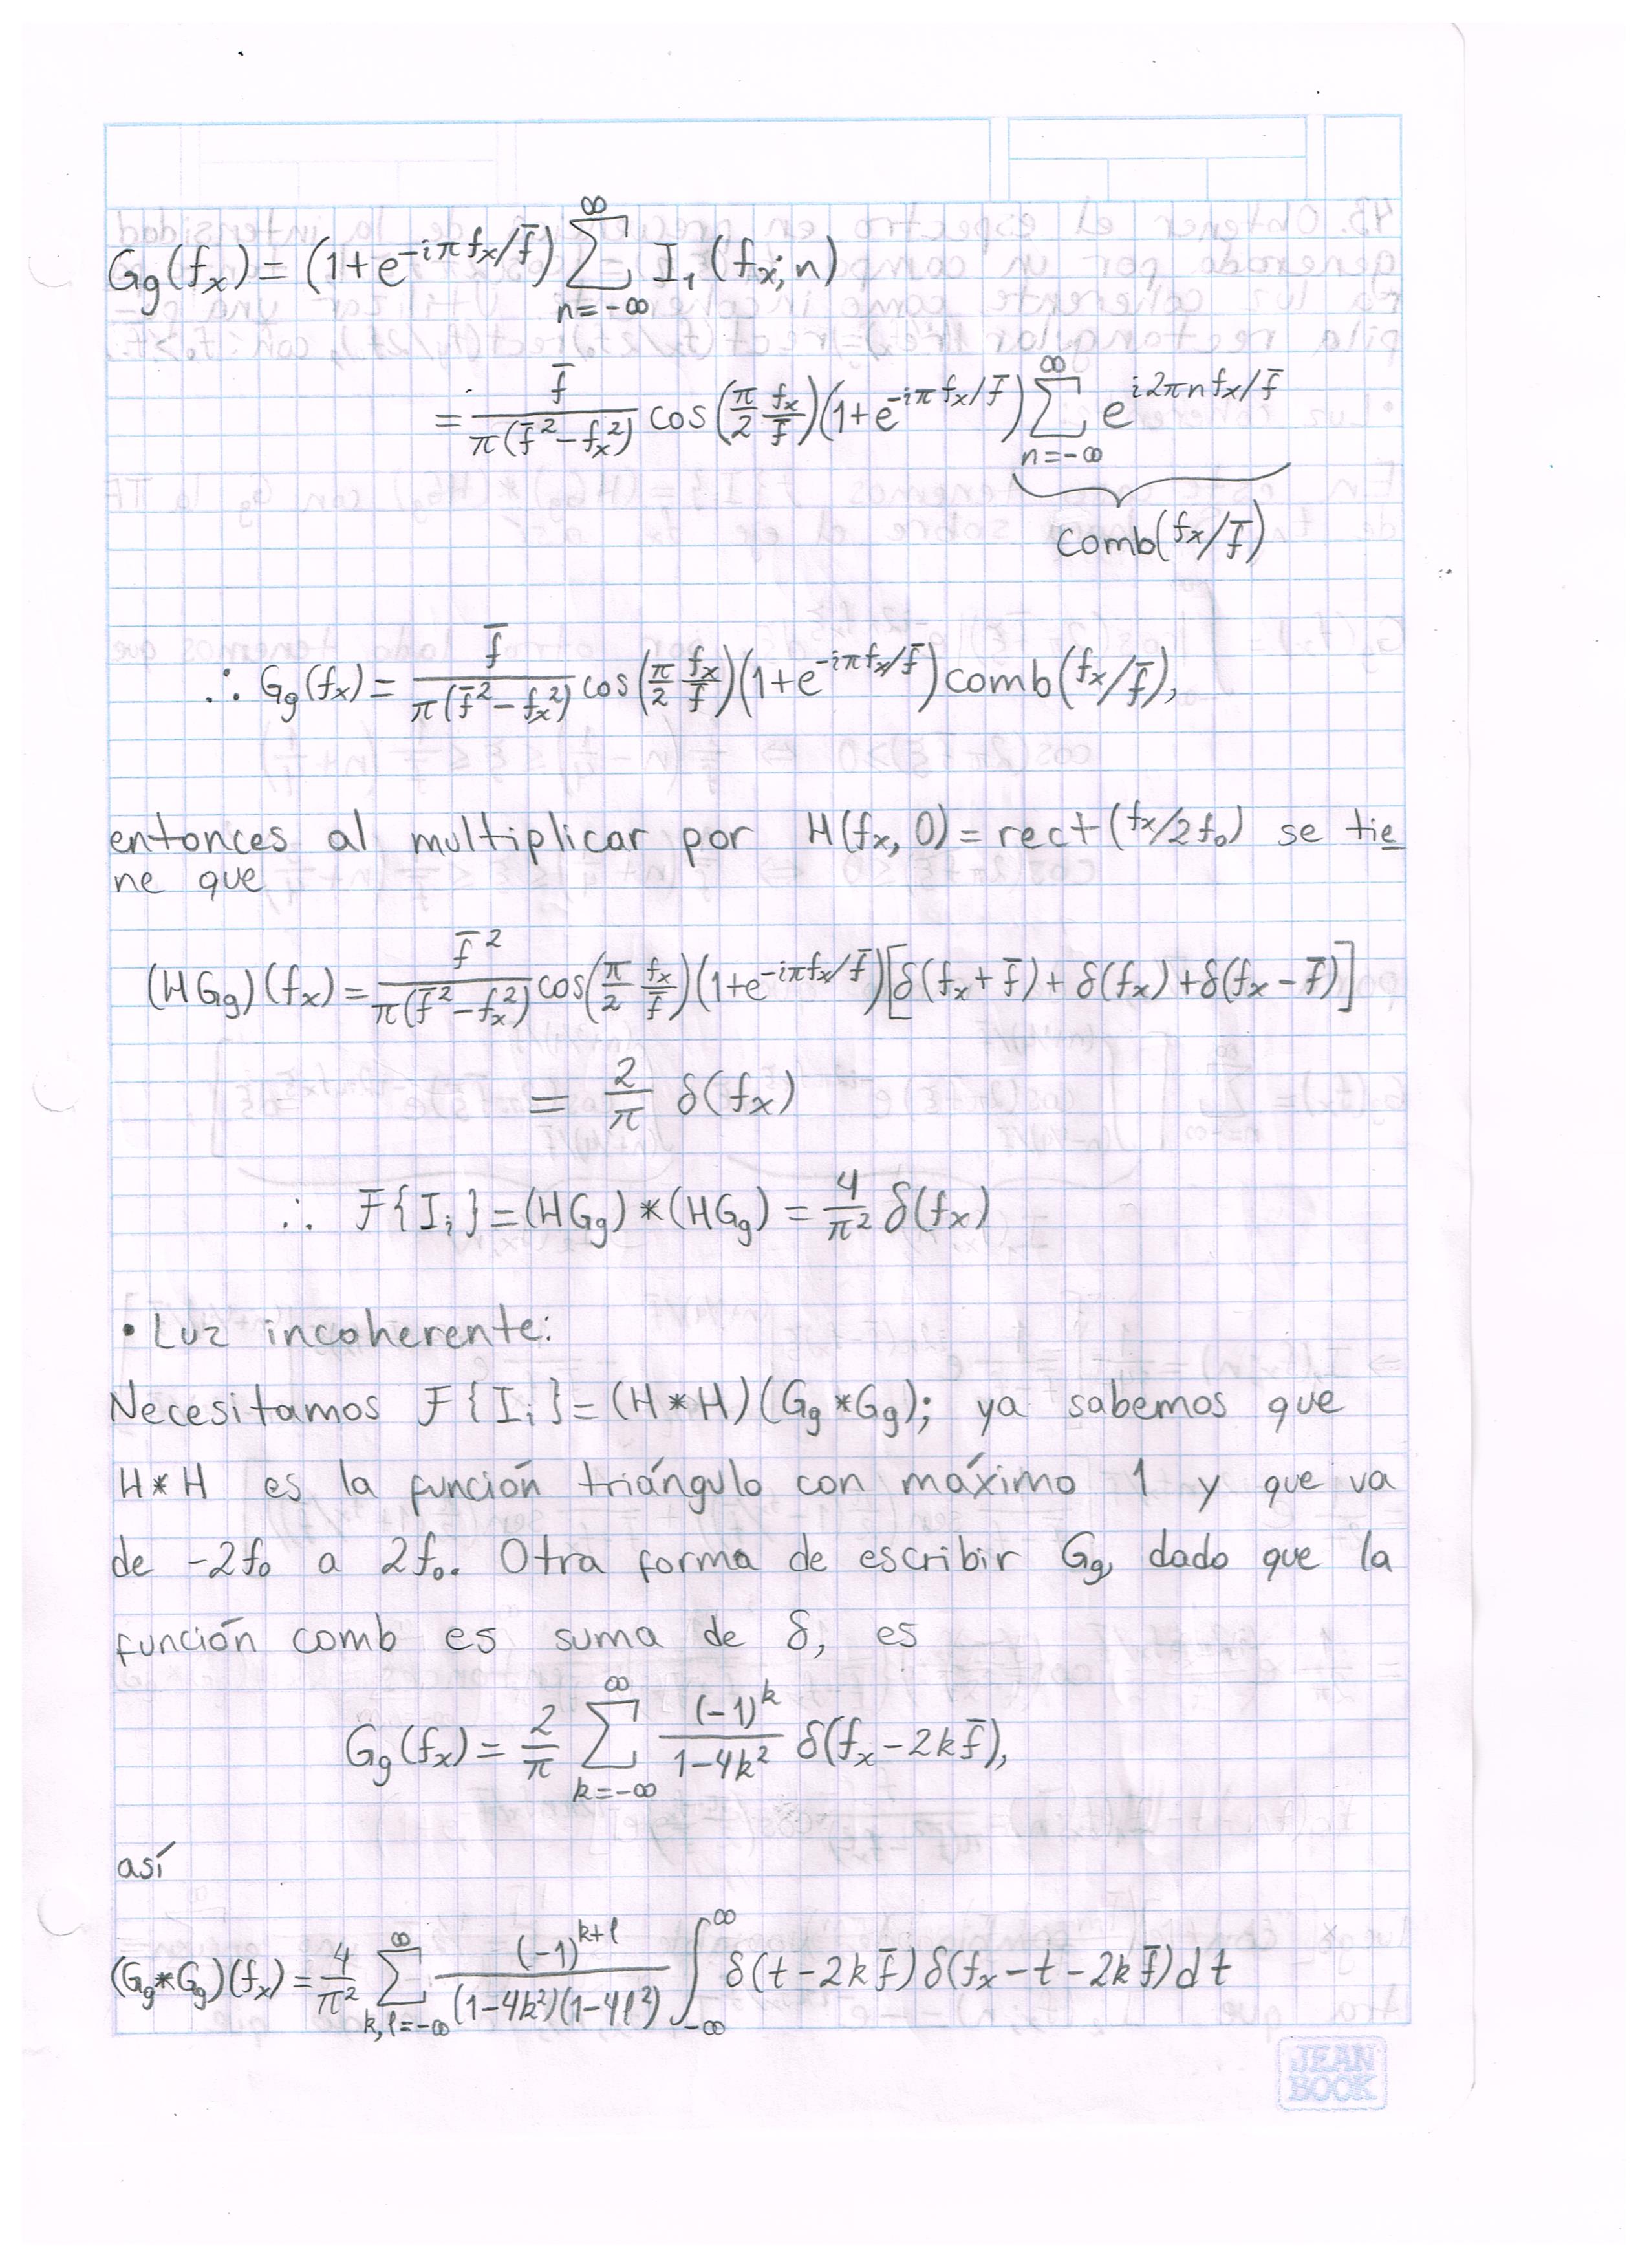 G_g(f_x) = (1+e^{-iπf_x/f̄}) ∑_{n=-∞}^{∞} I_1(f_x; n)
= \frac{f̄}{π(f̄²-f_x²)} cos(\frac{π}{2} \frac{f_x}{f̄})(1+e^{-iπf_x/f̄}) ∑_{n=-∞}^{∞} e^{i2πnf_x/f̄}
comb(f_x/f̄)
∴ G_g(f_x) = \frac{f̄}{π(f̄²-f_x²)} cos(\frac{π}{2} \frac{f_x}{f̄})(1+e^{-iπf_x/f̄}) comb(f_x/f̄),
entonces al multiplicar por H(f_x, 0) = rect(f_x/2f_0) se tie
ne que
(HG_g)(f_x) = \frac{f̄²}{π(f̄²-f_x²)} cos(\frac{π}{2} \frac{f_x}{f̄})(1+e^{-iπf_x/f̄})[δ(f_x+f̄) + δ(f_x) + δ(f_x-f̄)]
= \frac{2}{π} δ(f_x)
∴ F{I_i} = (HG_g)*(HG_g) = \frac{4}{π²} δ(f_x)
• Luz incoherente:
Necesitamos F{I_i} = (H*H)(G_g*G_g); ya sabemos que
H*H es la función triángulo con máximo 1 y que va
de -2f_0 a 2f_0. Otra forma de escribir G_g, dado que la
función comb es suma de δ, es
G_g(f_x) = \frac{2}{π} ∑_{k=-∞}^{∞} \frac{(-1)^k}{1-4k²} δ(f_x-2kf̄),
así
(G_g*G_g)(f_x) = \frac{4}{π²} ∑_{k,l=-∞}^{∞} \frac{(-1)^{k+l}}{(1-4k²)(1-4l²)} ∫_{-∞}^{∞} δ(t-2kf̄)δ(f_x-t-2kf̄)dt
JEAN
BOOK